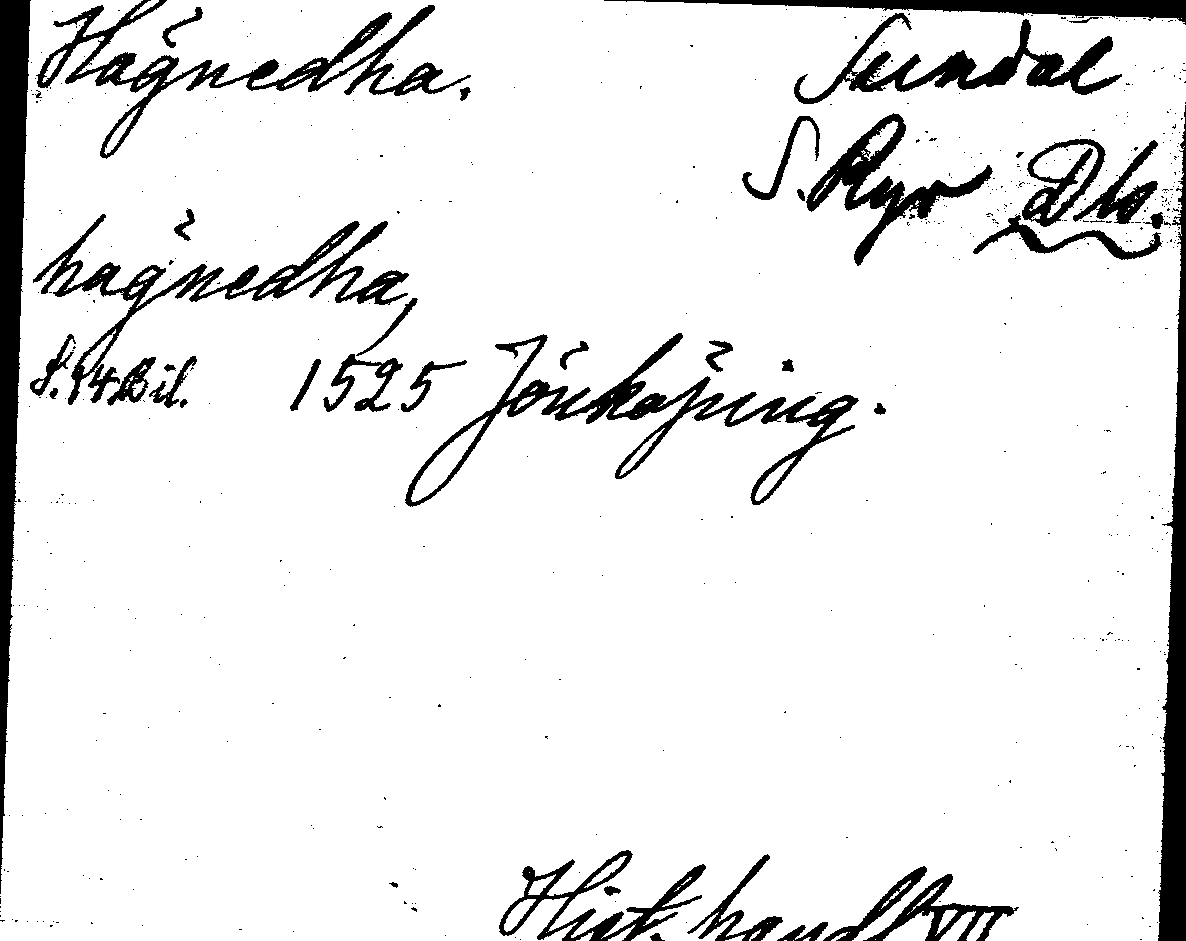 Hag̃nedha.
Sundal
S. Ryr Dls.
hag̃nedha,
S. 94 Bil. 1525 Jönköping.
Hist. handl VII